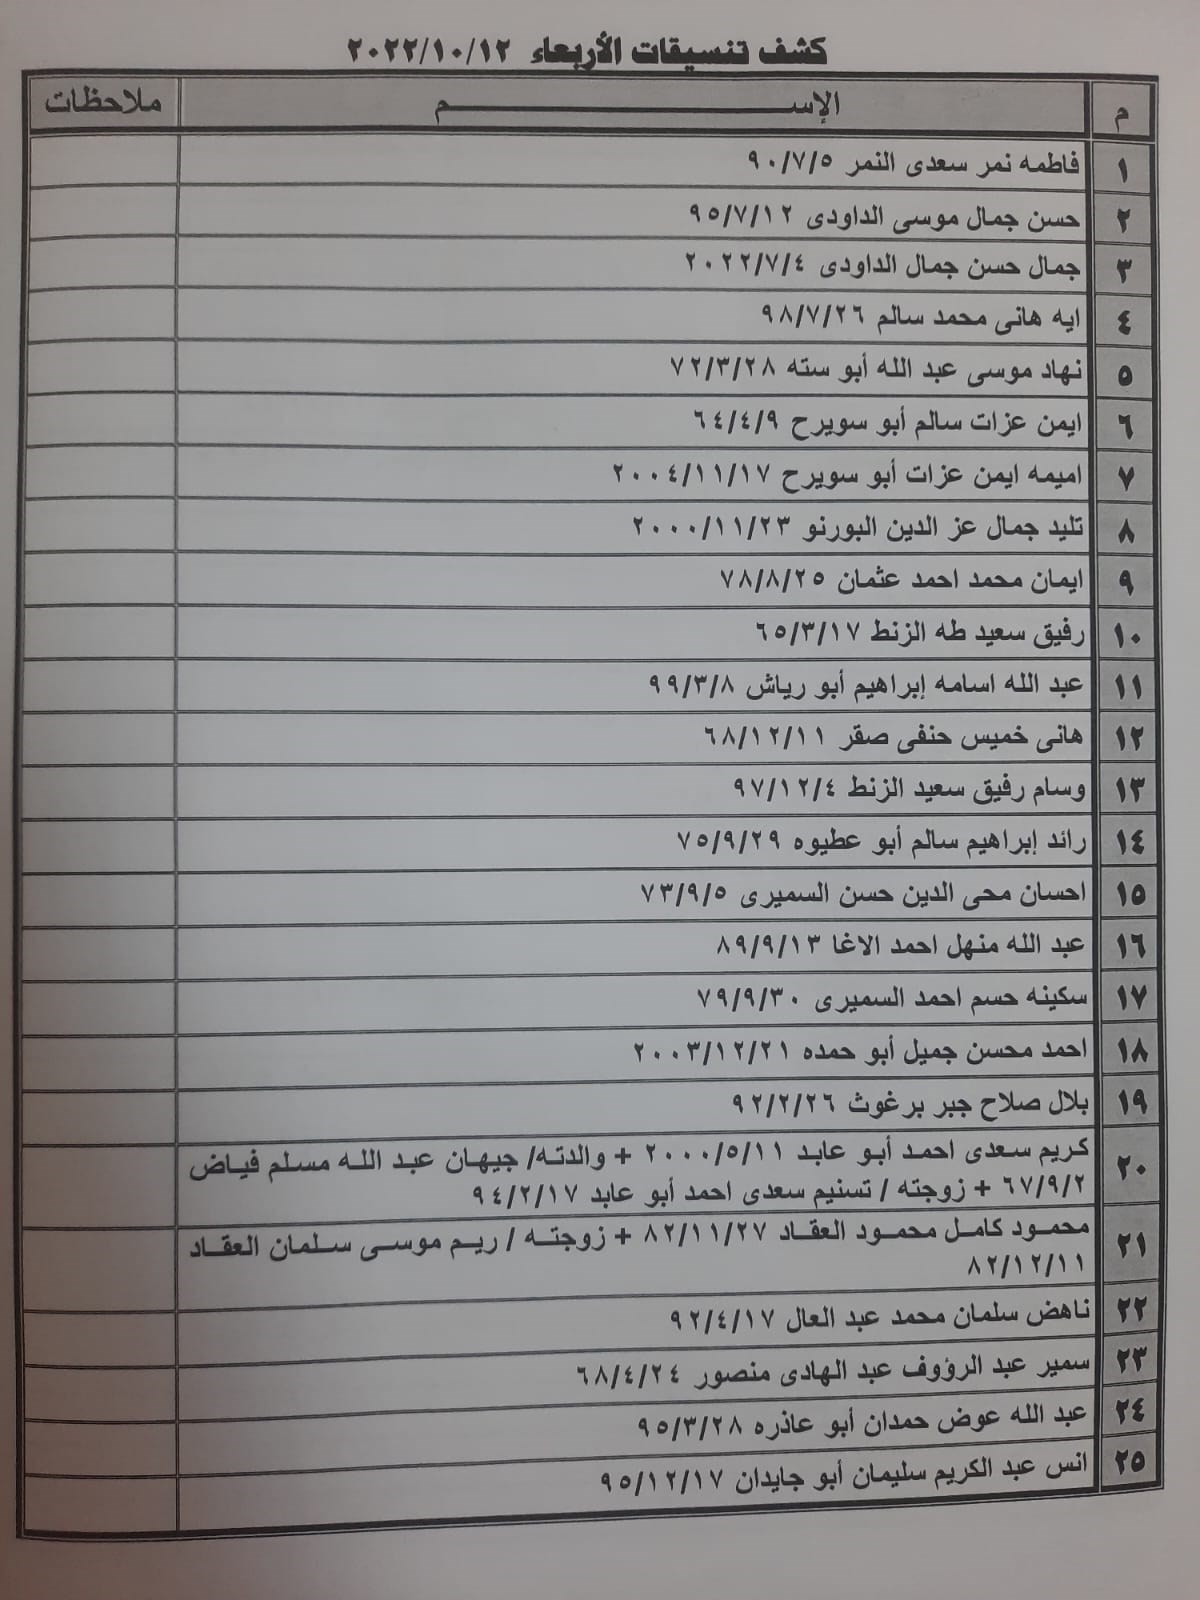 كشف تنسيقات الأربعاء ٢٠٢٢/١٠/١٢
م الإســـــم ملاحظات
١ فاطمه نمر سعدى النمر ٩٠/٧/٥
٢ حسن جمال موسى الداودى ٩٥/٧/١٢
٣ جمال حسن جمال الداودى ٢٠٢٢/٧/٤
٤ ايه هانى محمد سالم ٩٨/٧/٢٦
٥ نهاد موسى عبد الله أبو سته ٧٢/٣/٢٨
٦ ايمن عزات سالم أبو سويرح ٦٤/٤/٩
٧ اميمه ايمن عزات أبو سويرح ٢٠٠٤/١١/١٧
٨ تليد جمال عز الدين البورنو ٢٠٠٠/١١/٢٣
٩ ايمان محمد احمد عثمان ٧٨/٨/٢٥
١٠ رفيق سعيد طه الزنط ٦٥/٣/١٧
١١ عبد الله اسامه إبراهيم أبو رياش ٩٩/٣/٨
١٢ هانى خميس حنفى صقر ٦٨/١٢/١١
١٣ وسام رفيق سعيد الزنط ٩٧/١٢/٤
١٤ رائد إبراهيم سالم أبو عطيوه ٧٥/٩/٢٩
١٥ احسان محى الدين حسن السميرى ٧٣/٩/٥
١٦ عبد الله منهل احمد الاغا ٨٩/٩/١٣
١٧ سكينه حسم احمد السميرى ٧٩/٩/٣٠
١٨ احمد محسن جميل أبو حمده ٢٠٠٣/١٢/٢١
١٩ بلال صلاح جبر برغوث ٩٢/٢/٢٦
٢٠ كريم سعدى احمد أبو عابد ٢٠٠٠/٥/١١ + والدته/ جيهان عبد الله مسلم فياض
٦٧/٩/٢ + زوجته / تسنيم سعدى احمد أبو عابد ٩٤/٢/١٧
٢١ محمود كامل محمود العقاد ٨٢/١١/٢٧ + زوجته / ريم موسى سلمان العقاد
٨٢/١٢/١١
٢٢ ناهض سلمان محمد عبد العال ٩٢/٤/١٧
٢٣ سمير عبد الرؤوف عبد الهادى منصور ٦٨/٤/٢٤
٢٤ عبد الله عوض حمدان أبو عاذره ٩٥/٣/٢٨
٢٥ انس عبد الكريم سليمان أبو جايدان ٩٥/١٢/١٧